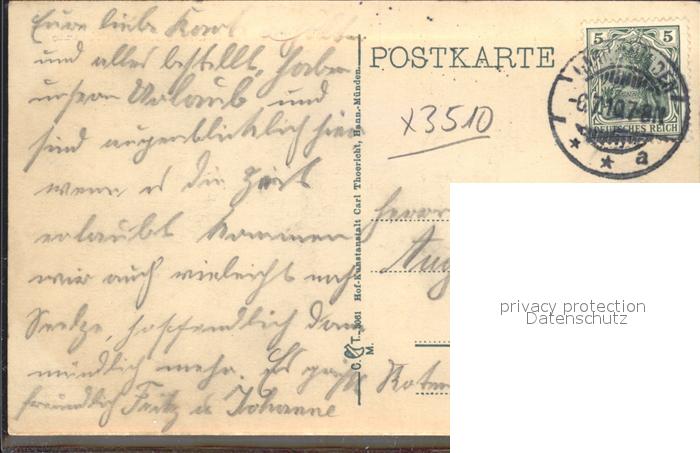 Eure liebe Karte
und alles bestellt, haben
unsern Urlaub und
sind augenblicklich hier
wenn es die Zeit
erlaubt kommen
wir auch vieleicht nach
Seelze, hoffendlich dann
mündlich mehr. Es grüßt
freundlich Fritz u Johanne
POSTKARTE
x3510
5 5
DEUTSCHES REICH
7.10.7-8N
* * a
Herrn
Aug
Roten
C. T. 3061 Hof-Kunstanstalt Carl Thoericht, Hann.-Münden.
M.
privacy protection
Datenschutz